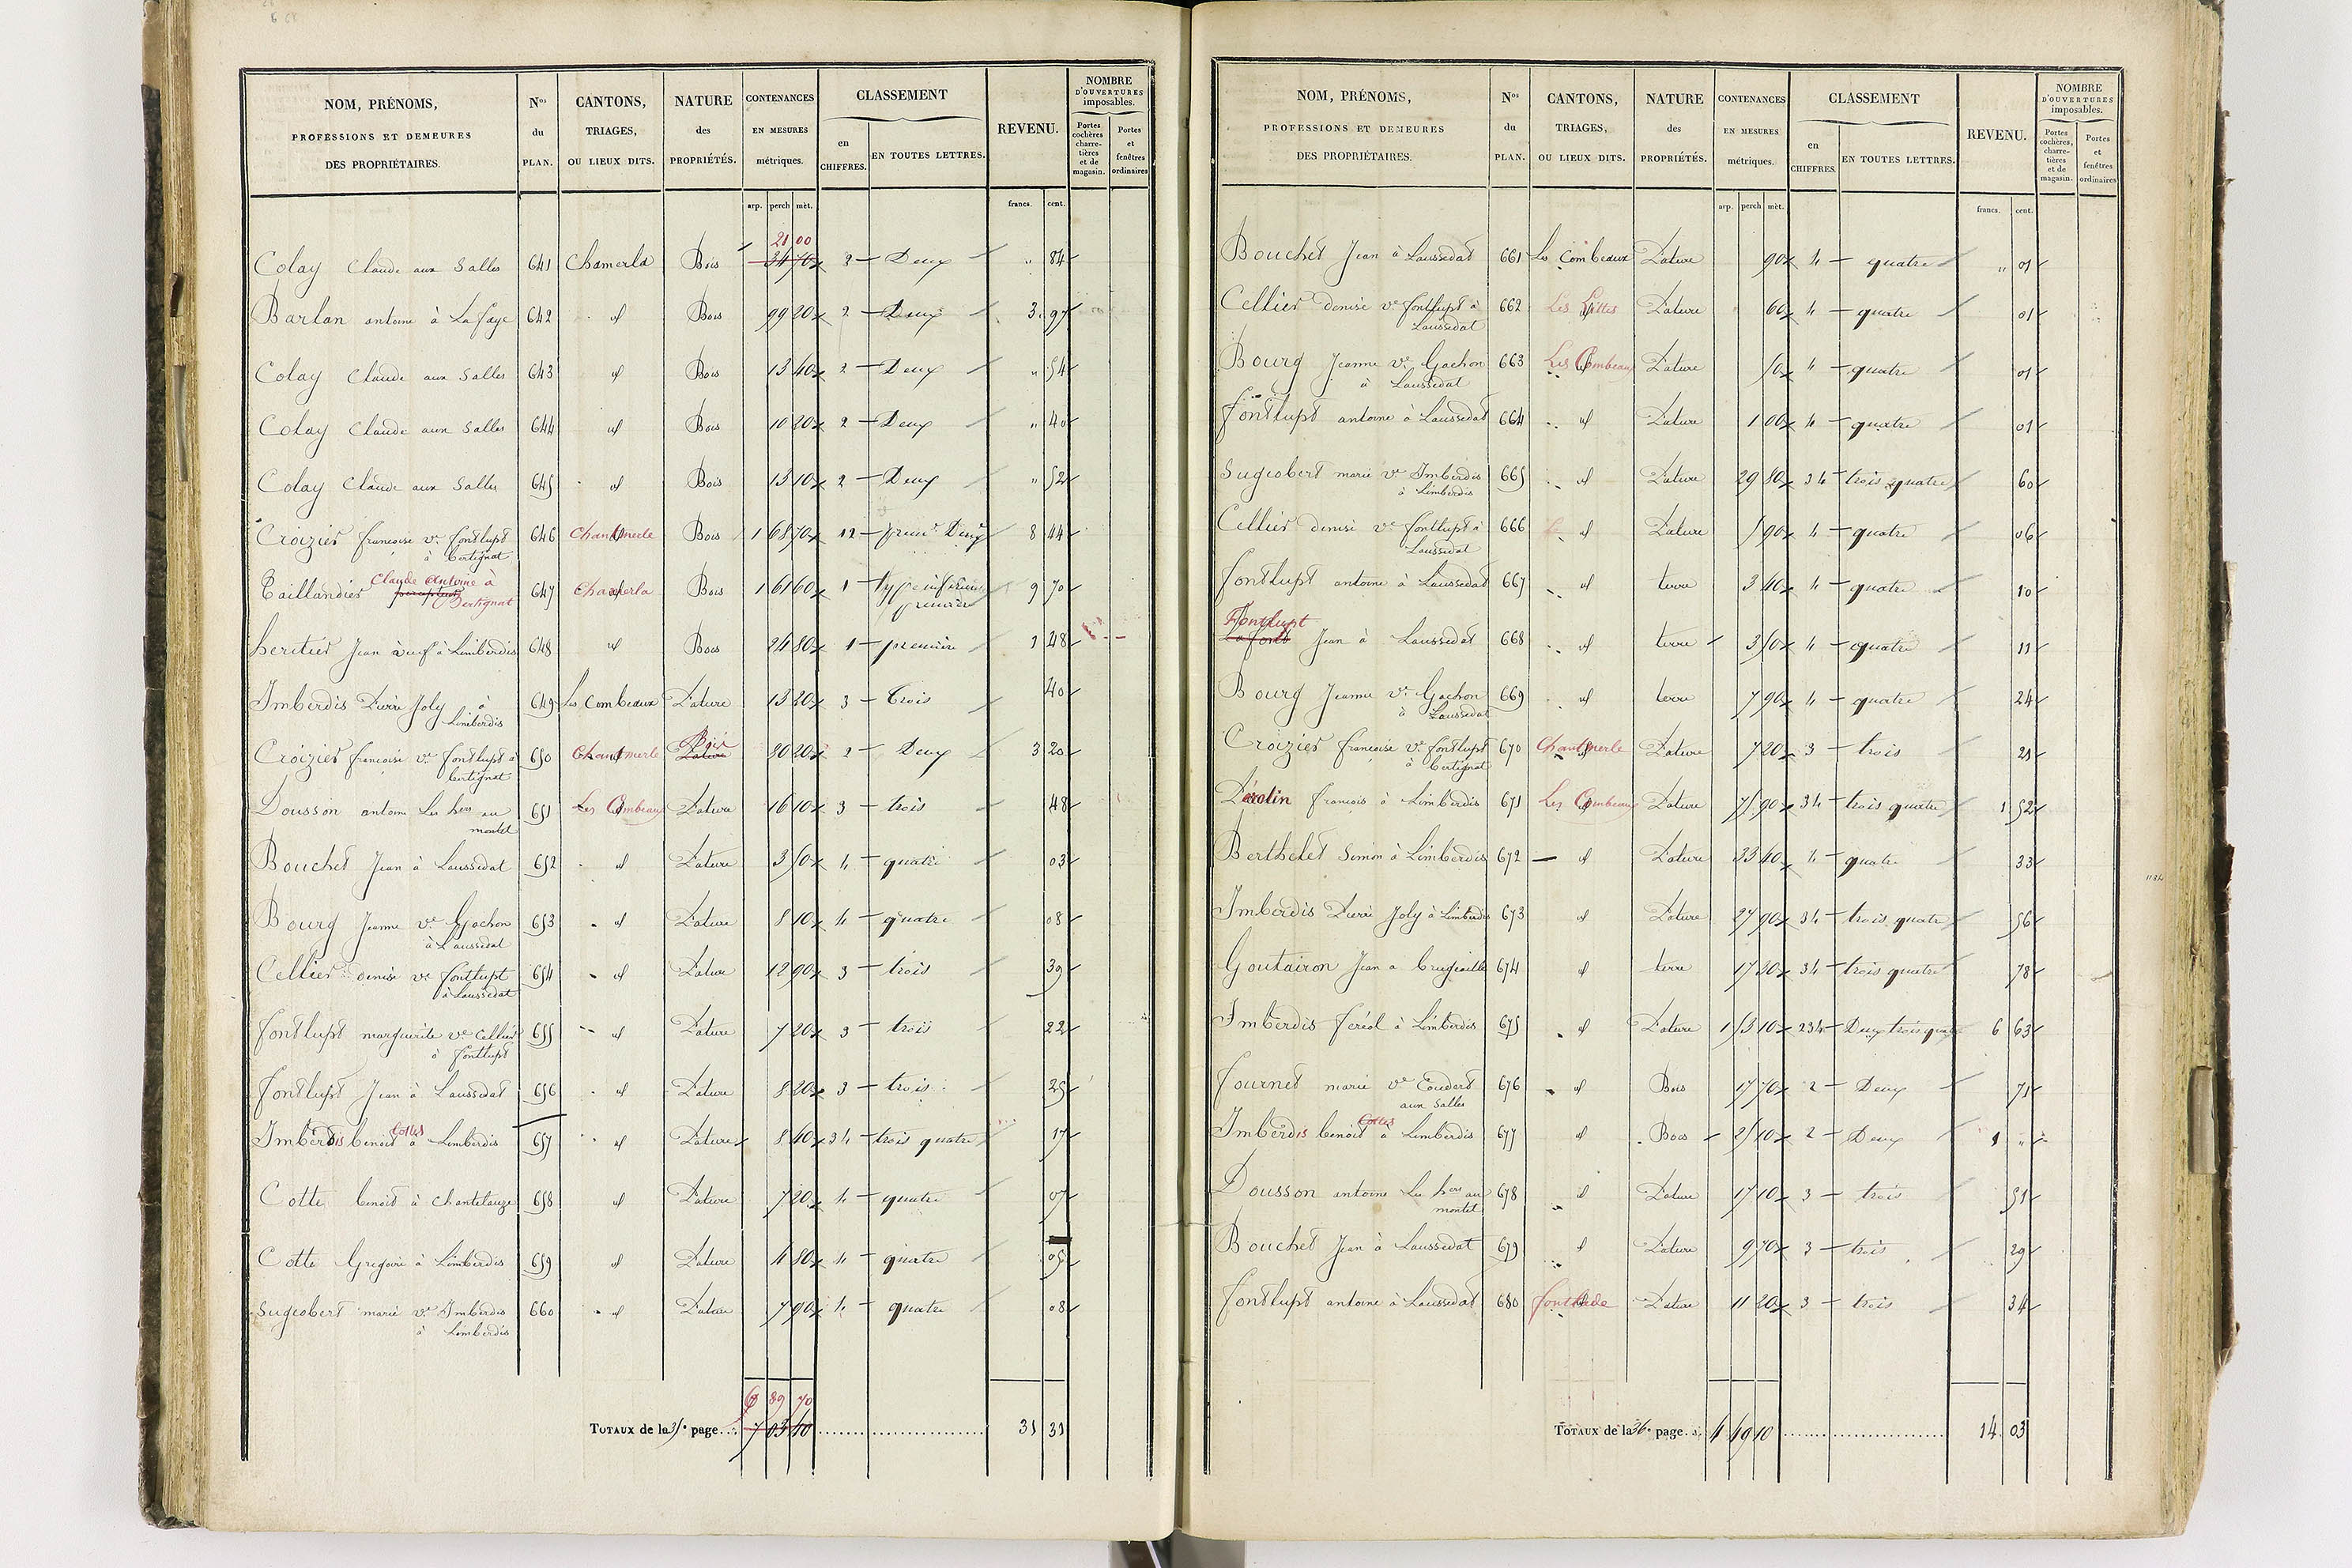 NOM, PRÉNOMS, PROFESSIONS ET DEMEURES DES PROPRIÉTAIRES. | Nos du PLAN. | CANTONS, TRIAGES, OU LIEUX DITS. | NATURE des PROPRIÉTÉS. | CONTENANCES EN MESURES métriques. | CLASSEMENT en CHIFFRES. | EN TOUTES LETTRES. | REVENU. | NOMBRE D'OUVERTURES imposables. Portes cochères charretières et de magasin. | Portes et fenêtres ordinaires
arp. perch mèt. francs. cent.
21 00
Colay Claude aux Salles 641 Chamerla Bois 34 70 2 Deux " 84
Barlan antoine à La faye 642 id Bois 99 20 2 Deux 3 97
Colay Claude aux Salles 643 id Bois 13 40 2 Deux " 54
Colay Claude aux Salles 644 id Bois 10 20 2 Deux " 40
Colay Claude aux Salles 645 id Bois 13 10 2 Deux " 52
Croizier françoise ve fontlupt 646 Chantmerle Bois 1 68 70 12 prem Deux 8 44
à bertignat
Claude Antoine à
Taillandier Bertignat 647 Chamerla Bois 1 61 60 1 première 9 70
heretier Jean à Limberdis 648 id Bois 24 80 1 première 1 48
Imberdis Pierre Joly à 649 Les Combeaux Pature 13 20 3 Trois 40
Limberdis
Bois
Croizier françoise ve fontlupt à 650 Chantmerle Pature 80 20 2 Deux 3 20
bertignat
Dousson antoine Les hers au 651 Les Combeaux Pature 16 10 3 trois 48
montel
Bouchet Jean à Laussedat 652 id Pature 3 50 4 quatre 03
Bourg Jeanne ve Gachon 653 id Pature 8 10 4 quatre 08
à Laussedat
Cellier denise ve fontlupt 654 id Pature 12 90 3 trois 39
à Laussedat
fontlupt marguerite ve Cellier 655 id Pature 7 20 3 trois 22
à fontlupt
fontlupt Jean à Laussedat 656 id Pature 8 20 3 trois 25
Cottes
Imberdis benoit à Limberdis 657 id Pature 8 40 34 trois quatre 17
Cotte benoit à Chantelauze 658 id Pature 7 20 4 quatre 07
Cotte Gregoire à Limberdis 659 id Pature 4 80 4 quatre 05
Sugeobert marie ve Imberdis 660 id Pature 7 90 4 quatre 08
à Limberdis
6 89 70
TOTAUX de la 35e page 7 03 40 31 31
NOM, PRÉNOMS, PROFESSIONS ET DEMEURES DES PROPRIÉTAIRES. | Nos du PLAN. | CANTONS, TRIAGES, OU LIEUX DITS. | NATURE des PROPRIÉTÉS. | CONTENANCES EN MESURES métriques. | CLASSEMENT en CHIFFRES. | EN TOUTES LETTRES. | REVENU. | NOMBRE D'OUVERTURES imposables. Portes cochères, charretières et de magasin. | Portes et fenêtres ordinaires
arp. perch mèt. francs. cent.
Bouchet Jean à Laussedat 661 Les Combeaux Pature 90 4 quatre " 01
Cellier denise ve fontlupt à 662 Les Littes Pature 60 4 quatre 01
Laussedat
Bourg Jeanne ve Gachon 663 Les Combeaux Pature 50 4 quatre 01
à Laussedat
fontlupt antoine à Laussedat 664 id Pature 1 00 4 quatre 01
Sugeobert marie ve Imberdis 665 id Pature 29 80 34 trois quatre 60
à Limberdis
Cellier denise ve fontlupt à 666 id Pature 5 90 4 quatre 06
Laussedat
fontlupt antoine à Laussedat 667 id terre 3 40 4 quatre 10
Fontlupt
Lafont Jean à Laussedat 668 id terre 3 50 4 quatre 11
Bourg Jeanne ve Gachon 669 id terre 7 90 4 quatre 24
à Laussedat
Croizier françoise ve fontlupt 670 Chantmerle Pature 7 20 3 trois 21
à bertignat
Derolin francois à Limberdis 671 Les Combeaux Pature 75 90 34 trois quatre 1 52
Berthelet Simon à Limberdis 672 id Pature 33 40 4 quatre 33
Imberdis Pierre Joly à Limberdis 673 id Pature 27 90 34 trois quatre 56
Goutairon Jean a 674 id terre 17 20 34 trois quatre 78
Imberdis feréol à Limberdis 675 id Pature 1 53 10 234 Deux trois quatre 6 63
fournet marie ve Coudert 676 id Bois 17 70 2 Deux 71
aux Salles
Cottes
Imberdis benoit à Limberdis 677 id Bois 25 10 2 Deux 1 "
Dousson antoine Les hers au 678 id Pature 17 10 3 trois 51
montel
Bouchet Jean à Laussedat 679 id Pature 9 70 3 trois 29
fontlupt antoine à Laussedat 680 Pature 11 20 3 trois 34
TOTAUX de la 36e page 4 49 10 14 03